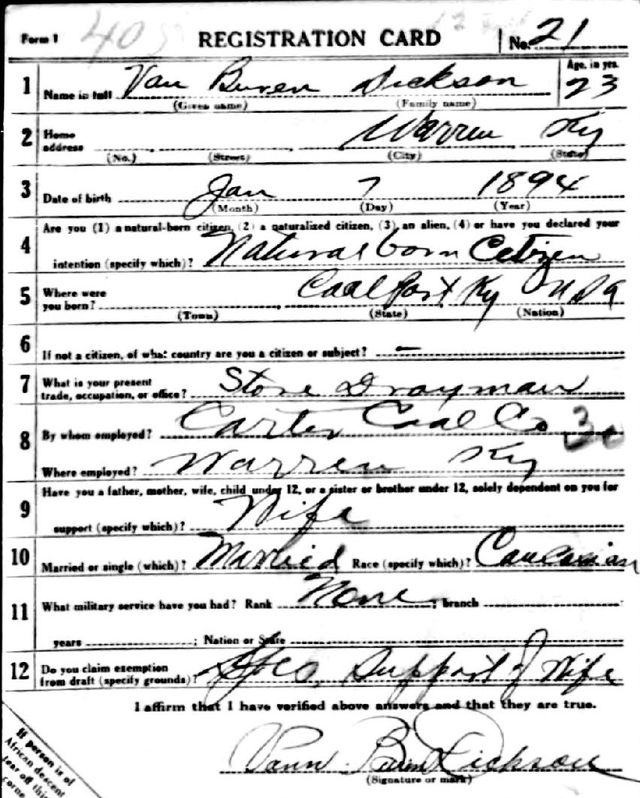 Form 1 405 REGISTRATION CARD No. 21
1 Name in full Van Buren Dickson Age, in yrs. 23
(Given name) (Family name)
2 Home address Warren Ky
(No.) (Street) (City) (State)
3 Date of birth Jan 7 1894
(Month) (Day) (Year)
4 Are you (1) a natural-born citizen, (2) a naturalized citizen, (3) an alien, (4) or have you declared your
intention (specify which)? Natural born Citizen
5 Where were you born? Coalport Ky USA
(Town) (State) (Nation)
6 If not a citizen, of what country are you a citizen or subject? –
7 What is your present trade, occupation, or office? Store Drayman
8 By whom employed? Carter Coal Co 30
Where employed? Warren Ky
9 Have you a father, mother, wife, child under 12, or a sister or brother under 12, solely dependent on you for
support (specify which)? Wife
10 Married or single (which)? Married Race (specify which)? Caucasian
11 What military service have you had? Rank None ; branch
years ; Nation or State
12 Do you claim exemption from draft (specify grounds)? Support of Wife
I affirm that I have verified above answers and that they are true.
Vann Buren Dickson
(Signature or mark)
If person is of
African descent
tear off this
corne